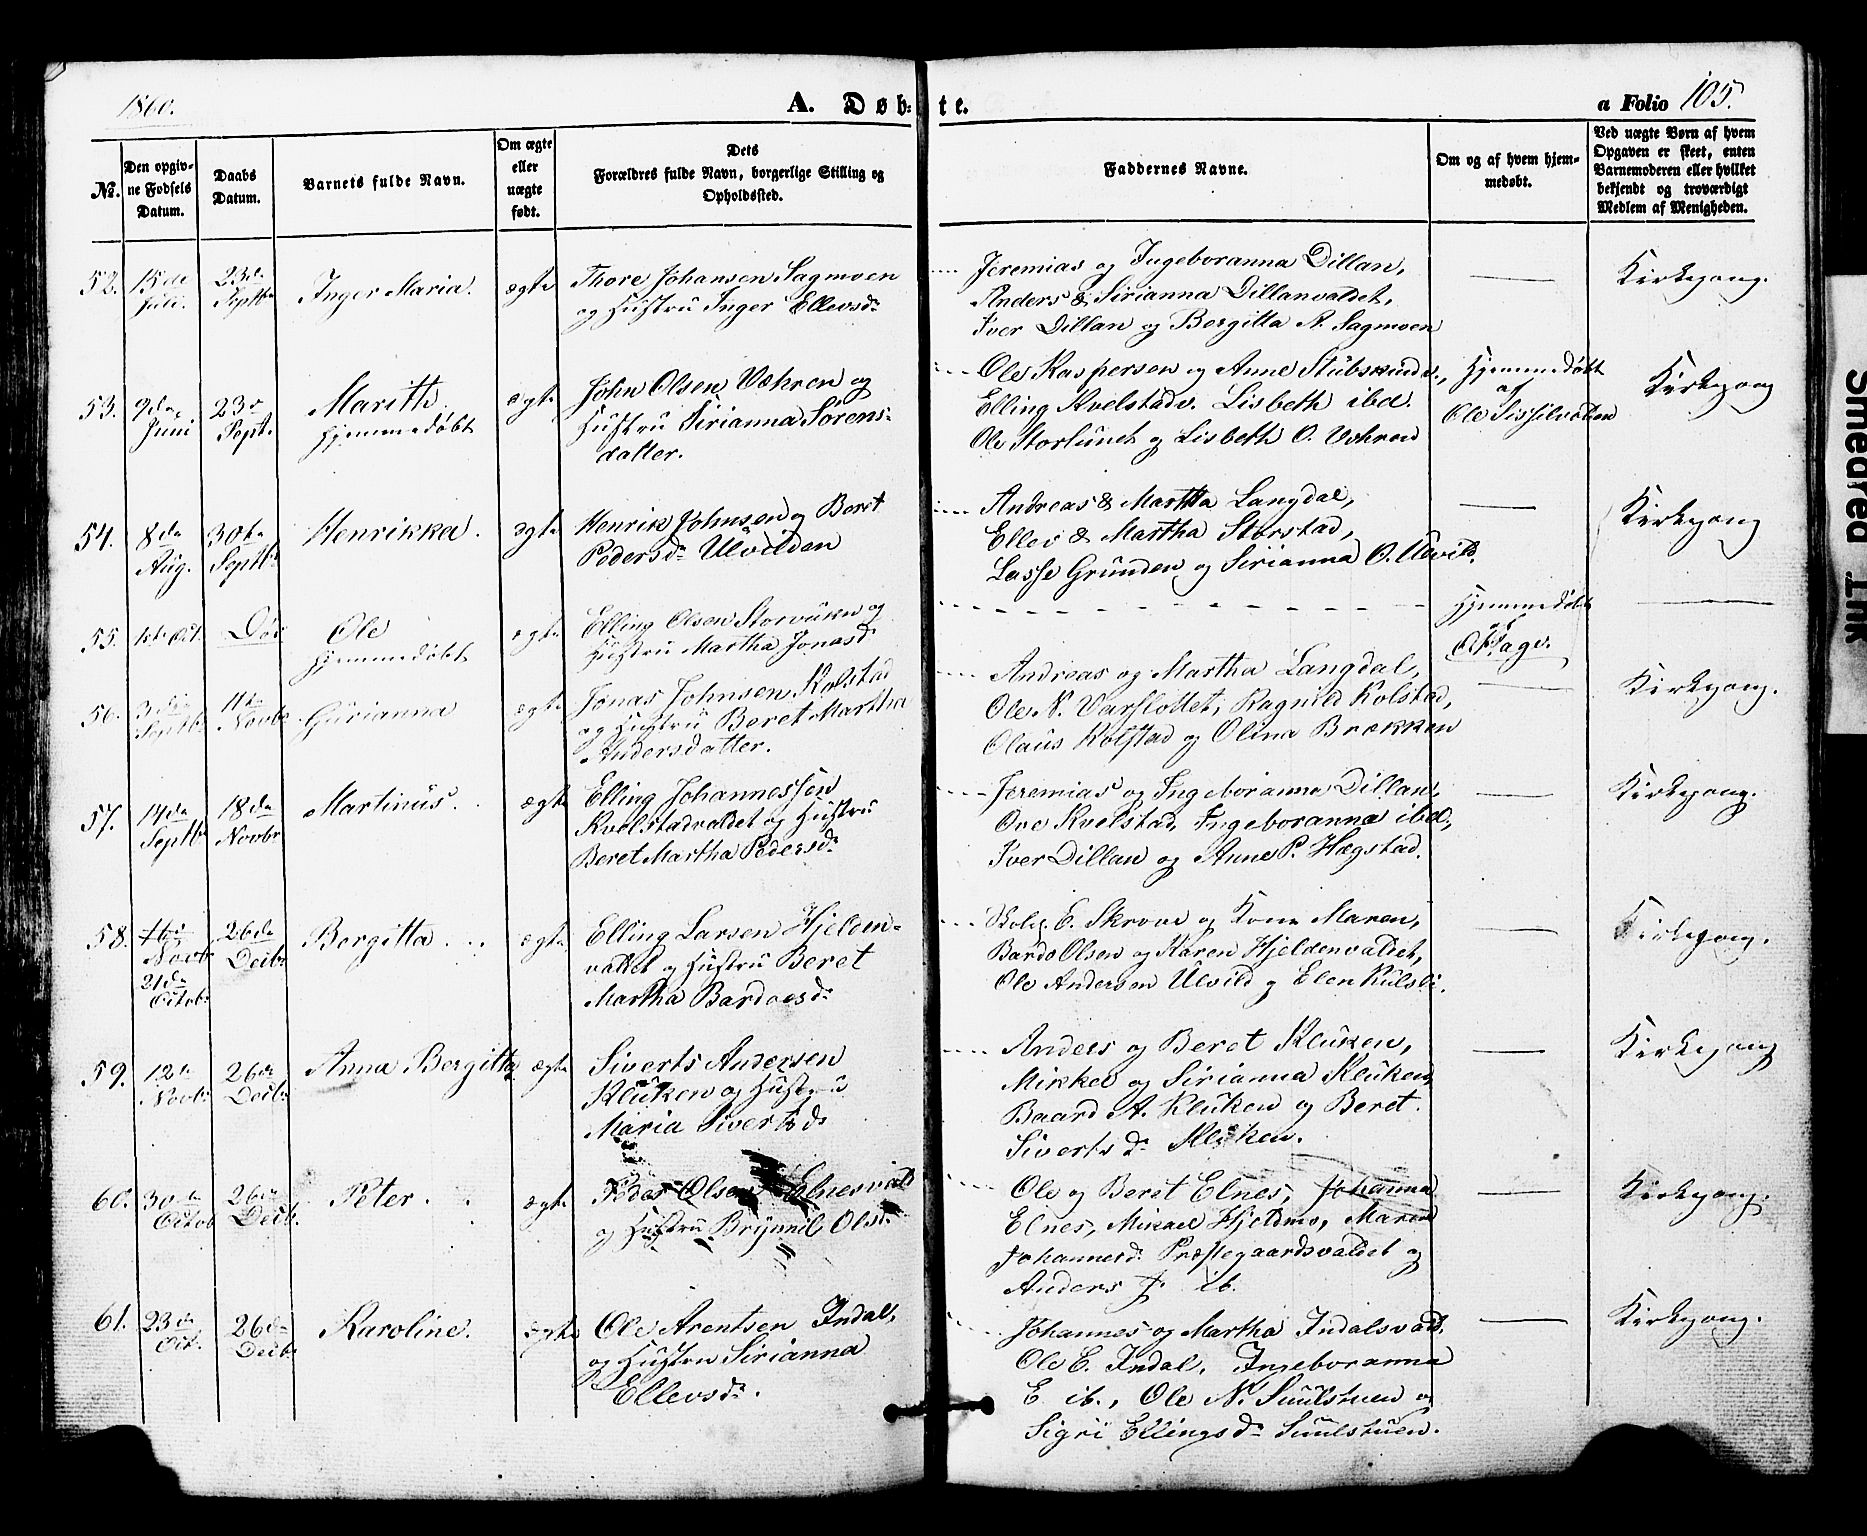 1860.
A. Døb:
te.
a Folio 105.
№.
Den opgiv-
ne Fødsels
Datum.
Daabs
Datum.
Barnets fulde Navn.
Om ægte
eller
uægte
født.
Dets
Forældres fulde Navn, borgerlige Stilling og
Opholdssted.
Faddernes Navne.
Om og af hvem hjem-
medøbt.
Ved uægte Børn af hvem
Opgaven er skeet, enten
Barnemoderen eller hvilket
bekjendt og troværdigt
Medlem af Menigheden.
52. 15de Juli. 23de Septbr
Inger Maria.
ægte
Thore Johansen Sagmoen
og Hustru Inger Ellevsdr
Jeremias og Ingeboranna Dillan,
Anders & Sirianna Dillanvaldet,
Iver Dillan og Bergitta A. Sagmoen
Kirkegang.
53. 9de Juni 23de Sept.
Marith
hjemmedøbt
ægte
John Olsen Væhren og
Hustru Sirianna Sørens-
datter.
Ole Kaspersen og Anne
Elling Kvelstadv. Lisbeth ibd.
Ole Storlunet og Lisbeth O. Vehren
Hjemmedøbt
af
Ole
Kirkegang
54. 8de Aug. 30te Septbr
Henrikka.
ægte
Henrik Johnsen og Beret
Pedersdr Ulvilden
Andreas & Martha Langdal,
Ellev & Martha Storstad,
Lasse Grunden og Sirianna O. Ulvild.
Kirkegang
55. 1ste Oct.
Ole
hjemmedøbt
ægte
Elling Olsen
Hustru Martha Jonasd
Hjemmedøbt
af
56. 3die Septbr 11te Novbr
Gurianna
ægte
Jonas Johnsen Kolstad
og Hustru Beret Martha
Andersdatter.
Andreas og Martha Langdal,
Ole N. Varslottet, Ragnild Kolstad,
Olaus Kolstad og Olina Brækken
Kirkegang.
57. 14de Septbr 18de Novbr
Martinus.
ægte
Elling Johannessen
Kvelstadvaldet og Hustru
Beret Martha Pedersdr
Jeremias og Ingeboranna Dillan,
Ove Kvelstad, Ingeboranna ibd.,
Iver Dillan og Anne P. Hægstad.
Kirkegang.
58. 16de Novbr 21de Octobr 26de Decbr
Bergitta
ægte
Elling Larsen Hjelden-
valdet og Hustru Beret
Martha Bardoesdr
E. Skrove og Kone Maren,
Bardo Olsen og Karen Hjeldenvaldet,
Ole Andersen Ulvild og Elen Kulsli.
Kirkegang.
59. 12te Novbr 26de Decbr
Anna Bergitta
ægte
Siverts Andersen
Kluken og Hustru
Maria Sivertsd
Anders og Beret Kluken,
Mikkel og Sirianna Kluken,
Baard A. Kluken og Beret
Sivertsdr Kluken.
Kirkegang
60. 30te Octob 26de Decbr
Peter
ægte
Peder Olsen Elnesvald
og Hustru Brynnil Olsd.
Ole og Beret Elnes, Johanna
Elnes, Mikael Hjeldmo, Maren
Johannesd. Præstegaardsvaldet og
Anders J. ib.
Kirkegang.
61. 23de Oct. 26de Decbr
Karoline.
ægte
Ole Arentsen Indal,
og Hustru Sirianna
Ellevsdr.
Johannes og Martha Indalsvald.
Ole E. Indal, Ingeboranna
E ib., Ole N. Suulstuen og
Sigri Ellingsdr Suulstuen.
Kirkegang.